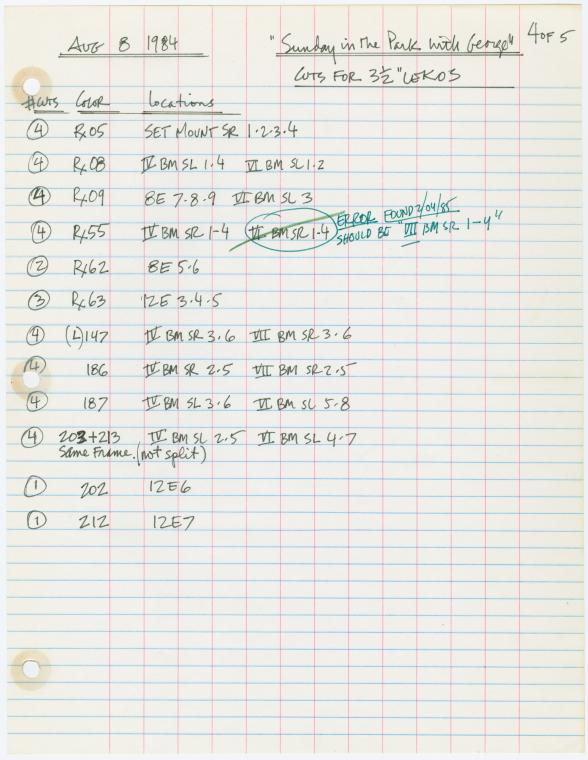 AUG 8 1984 "Sunday in the Park with George" 4 OF 5
CUTS FOR 3½" LEKOS
#CUTS COLOR Locations
④ Rx05 SET MOUNT SR 1·2·3·4
④ Rx08 IV BM SL 1·4 VI BM SL 1·2
④ Rx09 8E 7·8·9 VI BM SL 3
④ Rx55 IV BM SR 1-4 VI BM SR 1-4 ERROR FOUND 2/04/85
SHOULD BE "VII BM SR 1-4"
② Rx62 8E 5·6
③ Rx63 12E 3·4·5
④ (L)147 IV BM SR 3·6 VII BM SR 3·6
④ 186 IV BM SR 2·5 VII BM SR 2·5
④ 187 IV BM SL 3·6 VI BM SL 5·8
④ 203+213 IV BM SL 2·5 VI BM SL 4·7
Same Frame. (not split)
① 202 12E6
① 212 12E7